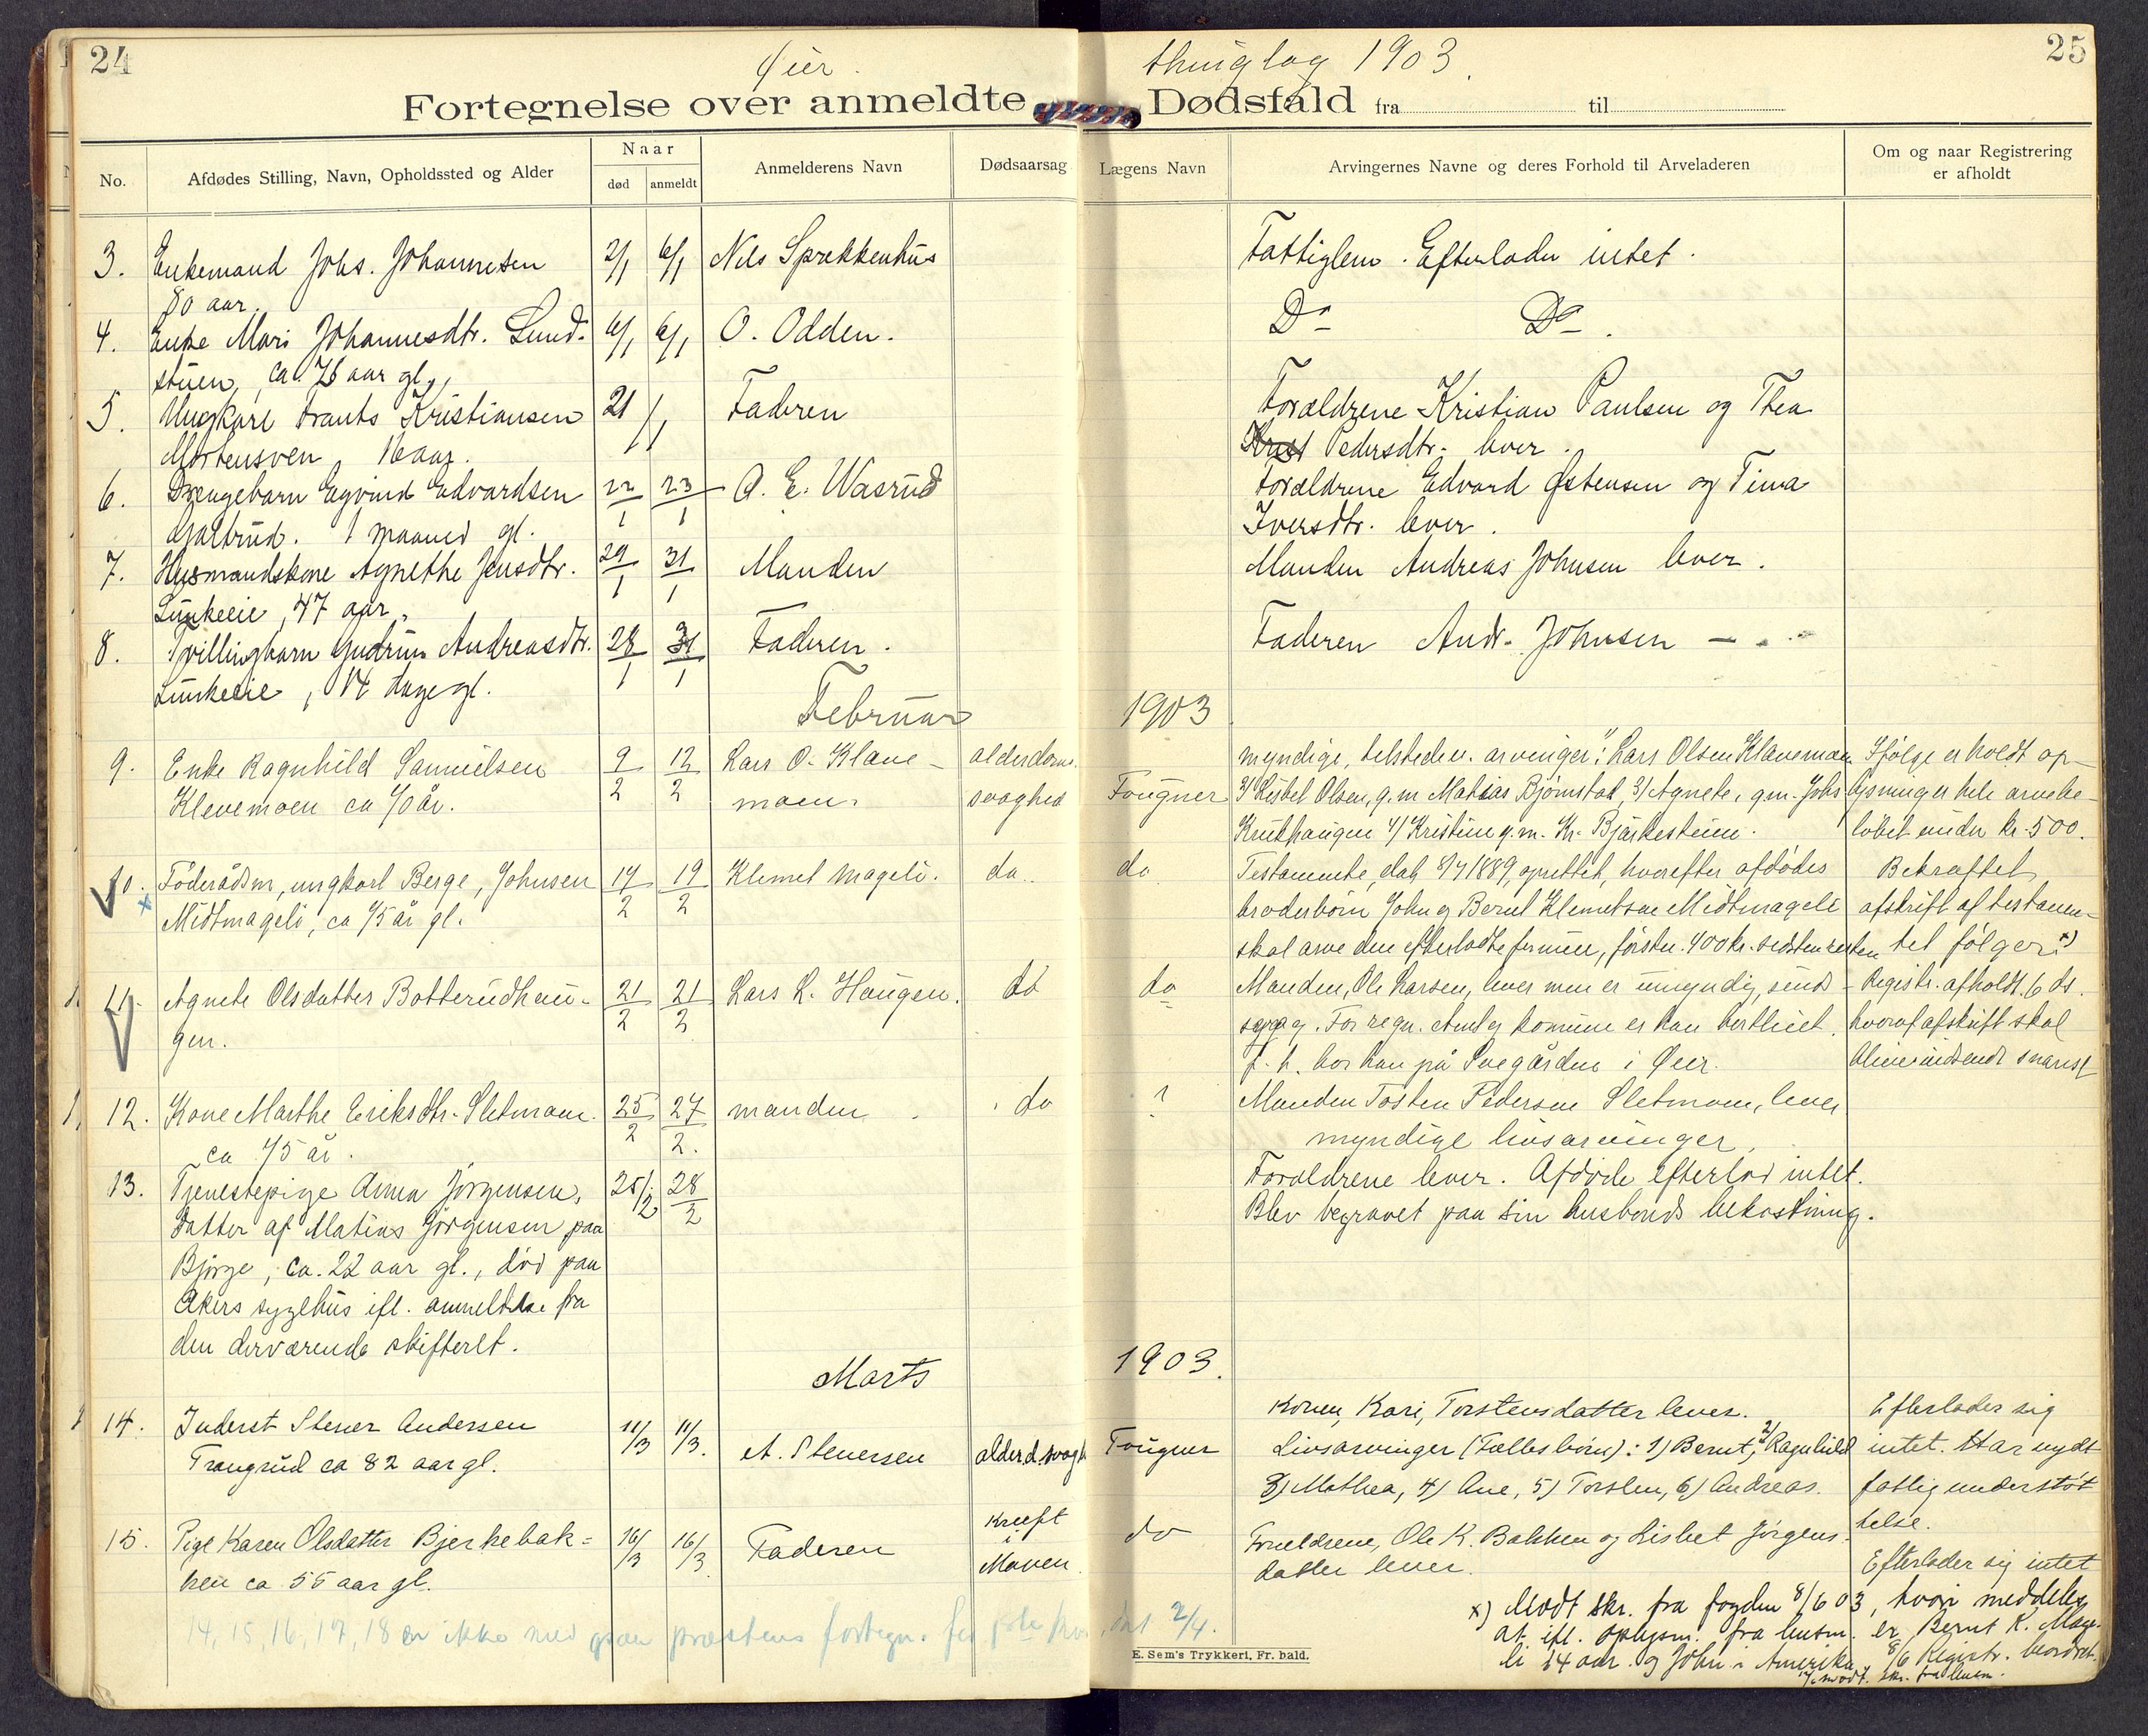 24
Øier
thinglag 1903.
25
Fortegnelse over anmeldte Dødsfald fra til
No.
Afdødes Stilling, Navn, Opholdssted og Alder
Naar
død
anmeldt
Anmelderens Navn
Dødsaarsag
Lægens Navn
Arvingernes Navne og deres Forhold til Arveladeren
Om og naar Registrering
er afholdt
3. Enkemand Johs. Johannesen 2/1 6/1 Nils Sprekkenhus Fattiglem. Efterlader intet.
80 aar.
4. Enke Mari Johannesdtr. Lund- 6/1 6/1 O. Odden. Do Do.
stuen, ca. 76 aar gl.
5. Ungkarl Frants Kristiansen 21/1 Faderen Forældrene Kristian Paulsen og Thea
Mortensven, 16 aar. Pedersdtr. lever.
6. Drengebarn Eyvind Edvardsen 22/1 23/1 A. E. Wasrud Forældrene Edvard Østensen og Tina
1 maaned gl. Iversdtr. lever.
7. Husmandskone Agnethe Jensdtr. 29/1 31/1 Manden Manden Andreas Johnsen lever.
Lunkeeie, 47 aar.
8. Tvillingbarn Gudrun Andreasdtr. 28/1 31/1 Faderen. Faderen Andr. Johnsen — " —
Lunkeeie, 14 dage gl.
Februar 1903
9. Enke Ragnhild Samuelsen 9/2 12/2 Lars O. Klave- alderdoms- myndige, tilstedev. arvinger: 1/ Lars Olsen Klavemoen Ifølge erholdt op-
Klevemoen ca 70 år. moen. svaghed Fougner 2/ Lisbet Olsen, g.m. Matias Bjørnstad, 3/ Agnete, gm. Johs lysning er hele arvebe-
4/ Kristine g.m. Kr. Bjørkestuen. løbet under kr. 500.
10. Föderådsm, ungkarl Berge, Johnsen 17/2 19/2 Klemet Mageli. do. do Testamente, dat 8/7 1889, oprettet, hvorefter afdødes Bekræftet
Midtmageli, ca 75 år gl. broderbørn John og Bernt Klemetsen Midtmageli afskrift af testamen-
skal arve den efterladte formue, første. 400 kr. sidste resten tet følger x)
11. Agnete Olsdatter Botterudhau- 21/2 21/2 Lars L. Haugen. do do Manden, Ole Larsen, lever men er umyndig, sinds- Registr. afholdt 6 ds.
gen. syg. For regn. Amt og komune er han bortlicit. hvoraf afskrift skal
f. t. bor han på Svegården i Øier. blive indsendt snarest
12. Kone Marthe Eriksdtr. Sletmoen. 25/2 27/2. manden do ? Manden Tosten Pedersen Sletmoen, lever
ca 75 år. myndige livsarvinger.
13. Tjenestepige Anna Jørgensen, 25/2 28/2 Forældrene lever. Afdøde efterlod intet.
datter af Matias Jørgensen paa Blev begravet paa sin husbonds bekostning.
Bjørge, ca. 22 aar gl., død paa
Akers sygehus ifl. anmeldelse fra
den derværende skifteret.
Marts 1903.
14. Inderst Stener Andersen 11/3 11/3. A. Stenersen alderd.svagh Fougner Konen, Kari, Torstensdatter lever. Efterlader sig
Trongrud ca 82 aar gl. Livsarvinger (Fællesbörn): 1) Bernt, 2/ Ragnhild intet. Har nydt
3) Mathea, 4) Ane, 5) Torsten, 6) Andreas. fattigunderstøt
telse.
15. Pige Karen Olsdatter Bjerkebak= 16/3 16/3. Faderen Kræft i Maven. do Forældrene, Ole K. Bakken og Lisbet Jörgens-
ken ca 55 aar gl. datter lever. Efterlader sig intet
14, 15, 16, 17, 18 er ikke med paa præstens fortegn. for dat 2/4.
x) Modt skr. fra fogden 8/6 03, hvori meddeles
at ifl. oplysn. fra lensm. er Bernt K. Mage-
li 14 aar. og John i Amerika. 8/6 Registr. beordret.
modt. skr. fra lensm.
E. Sem's Trykkeri, Fr. bald.